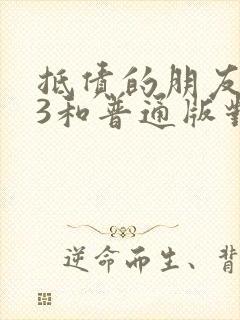 抵债的朋友
3和普通版對
逆命而生、背